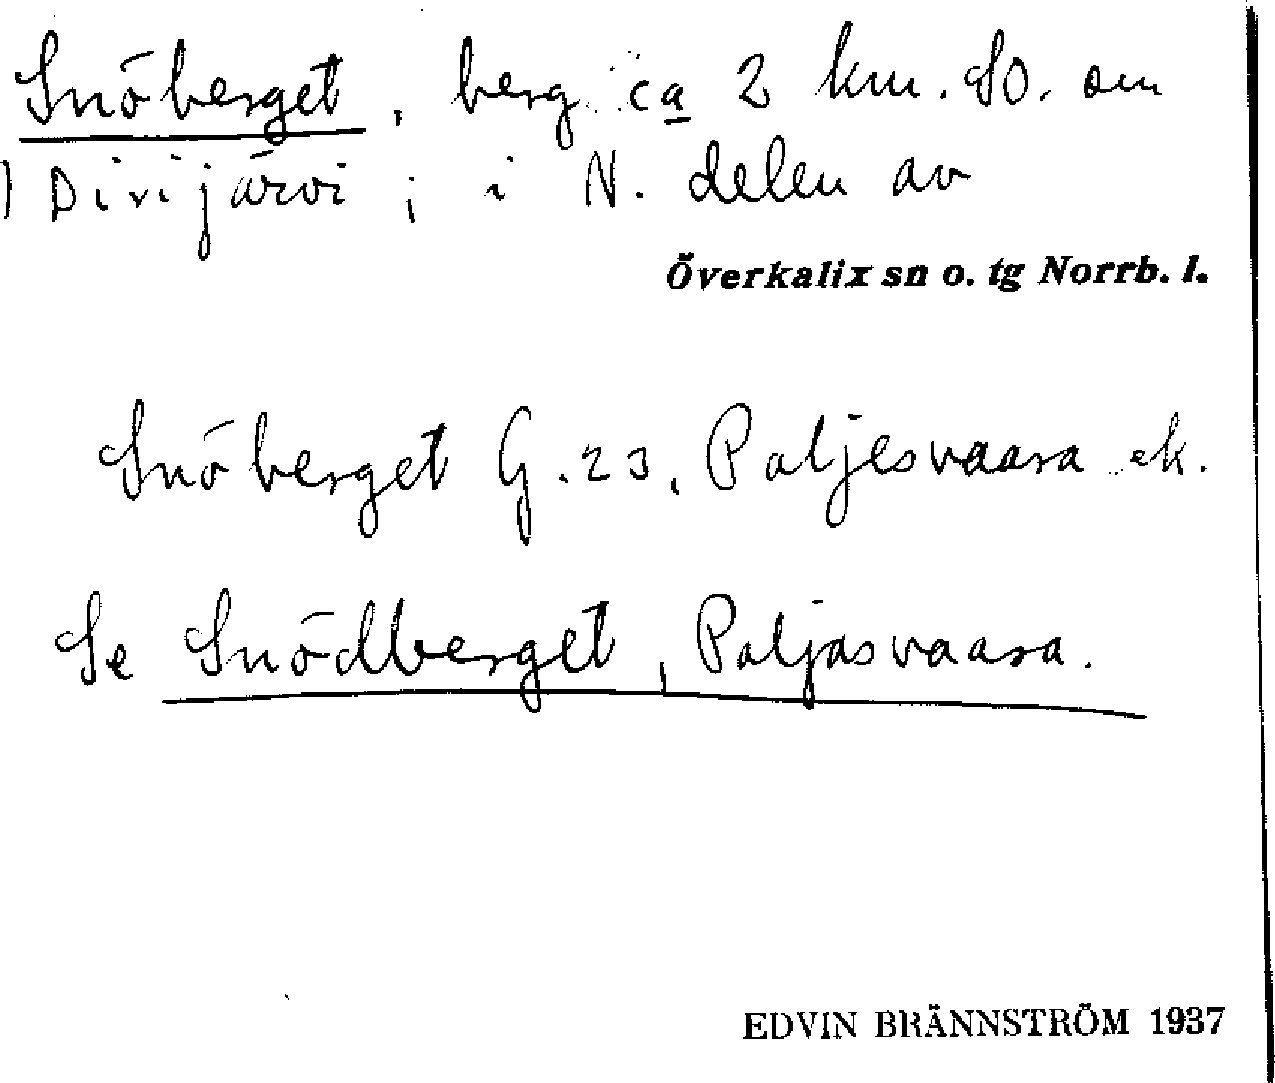 Snöberget, berg ca 2 km. SO. om
) Divijärvi; i N. delen av
Överkalix sn o. tg Norrb. l.
Snöberget G. 23, Paljesvaara ek.
Se Snödberget, Paljasvaara.
EDVIN BRÄNNSTRÖM 1937